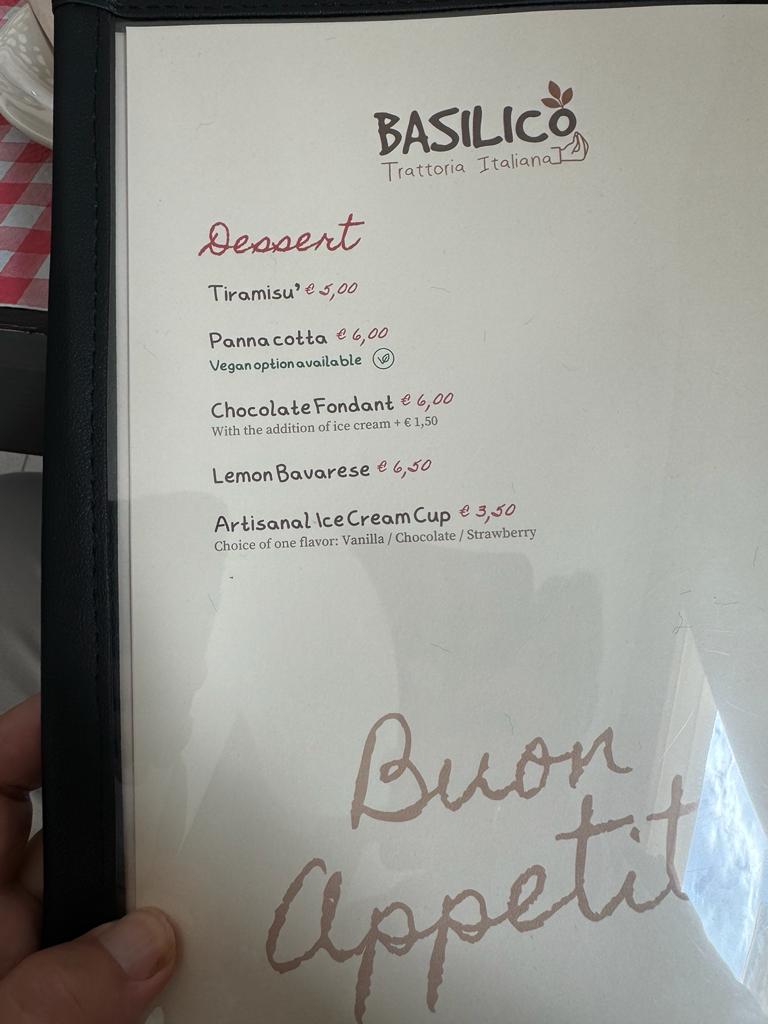 BASILICO
Trattoria Italiana
Dessert
Tiramisu' € 5,00
Panna cotta € 6,00
Vegan option available
Chocolate Fondant € 6,00
With the addition of ice cream + € 1,50
Lemon Bavarese € 6,50
Artisanal Ice Cream Cup € 3,50
Choice of one flavor: Vanilla / Chocolate / Strawberry
Buon
Appetit